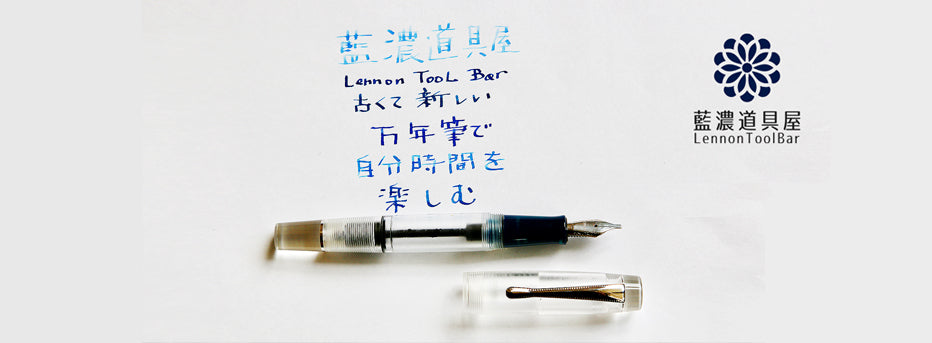 藍濃道具屋
Lennon Tool Bar
古くて新しい
万年筆で
自分時間を
楽しむ
藍濃道具屋
LennonToolBar